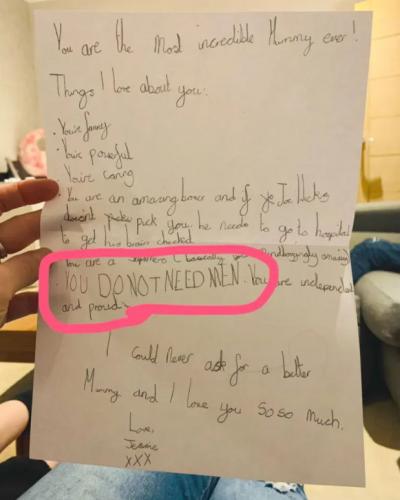 You are the most incredible Mummy ever!
Things I love about you:
· You're funny
· You're powerful
· You're caring
· You are an amazing boxer and if Joe Hicks
doesn't pick you he needs to go to hospital
to get his brain checked
· You are a superhero (basically) your amazing
· YOU DO NOT NEED MEN. You are independent
and proud.
I could never ask for a better
Mummy and I love you so so much.
Love,
Jessie
xxx